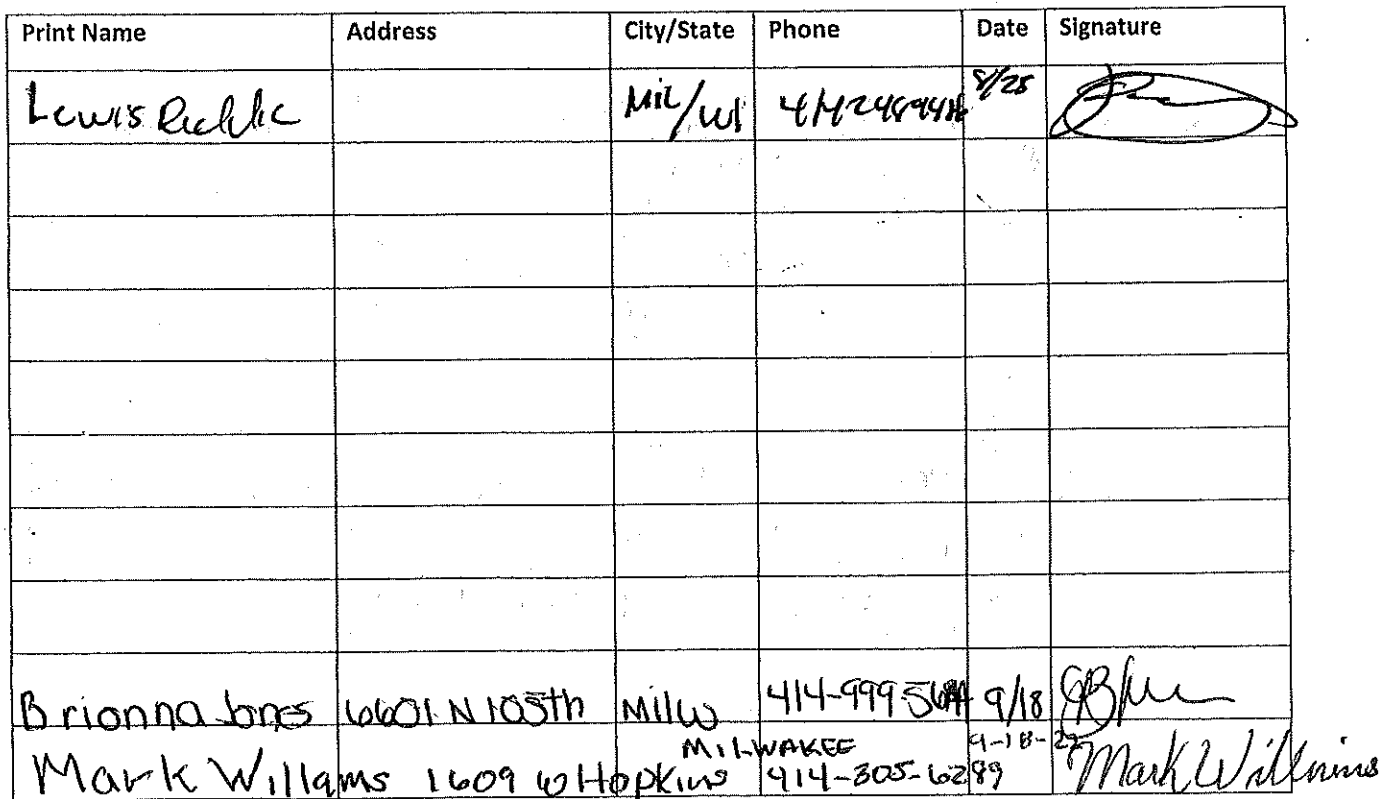 Print Name Address City/State Phone Date Signature
Lewis Mil/WI 8/25
Brionna Jones 6601 N 105th Milw 9/18
Mark Willams 1609 W Hopkins MILWAKEE 414-305-6289 9-18-22 Mark Willmins